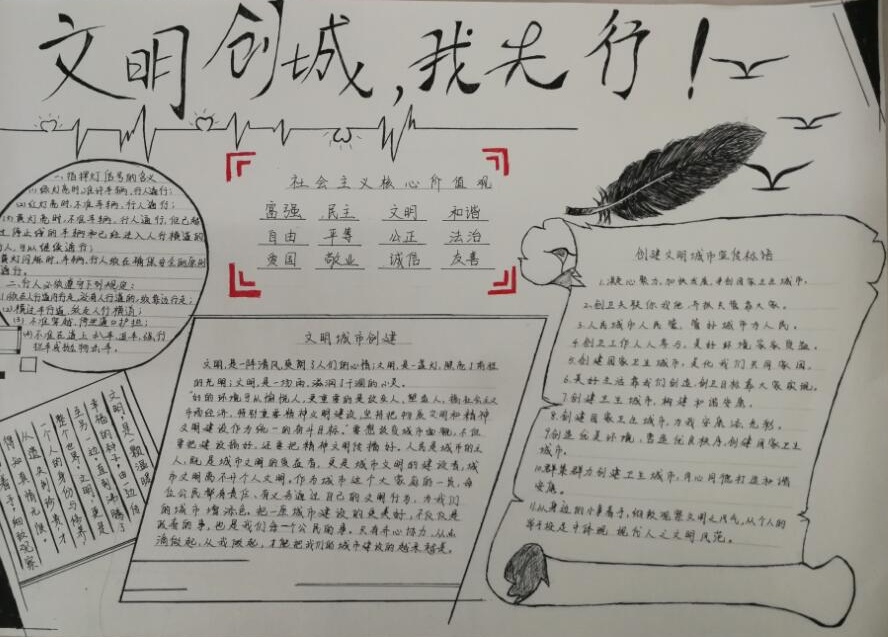 文明创城,我先行!
社会主义核心价值观
富强 民主 文明 和谐
自由 平等 公正 法治
爱国 敬业 诚信 友善
一、指挥灯信号的含义
(1)绿灯亮时,准许车辆、行人通行;
(2)红灯亮时,不准车辆、行人通行;
(3)黄灯亮时,不准车辆、行人通行,但已越
过停止线的车辆和已经进入人行横道的
行人,可以继续通行;
黄灯闪烁时,车辆、行人须在确保安全的原则
通行。
二、行人必须遵守下列规定:
(2)横过车行道,须走人行横道;
(3)不准穿越、倚坐道口护栏;
(4)不准在道上扒车、追车、强行
拦车或抛物击车。
文明,是一颗温暖
幸福的种子,由一边传
立另一边,直到沸腾了
整个世界。文明,更是
一个人的身份与修养,
文明城市创建
文明,是一阵清风爽朗了人们的心情;文明,是一盏灯,照亮了前程
的光明;文明,是一场雨,滋润了干涸的心灵。
市两经济,特别重要精神文明建设,坚持把物质文明和精神
文明建设作为统一的奋斗目标。要想改变城市面貌,不仅
要把建设搞好,还要把精神文明传播好。人民是城市的主
人,既是城市文明的受益者,更是城市文明的建设者,城
市文明离不开个人文明。作为城市这个大家庭的一员,每
位公民都有责任,有义务通过自己的文明行为,为我们
的城市增添色彩。
政府的事,也是我们每一个公民的事。只有齐心协力,从点
滴做起,从我做起,才能把我们的城市建设的越来越美。
创建文明城市宣传标语
1.凝心聚力,加快发展,争创国家卫生城市。
2.创卫关联你我他,齐抓共管靠大家。
3.人民城市人民管,管好城市为人民。
4.创卫工作人人参与,美好环境家家受益。
5.创建国家卫生城市,美化我们共同家园。
6.美好生活靠我们创造,创卫目标靠大家实现。
7.创建卫生城市,构建和谐安康。
8.创建国家卫生城市,为我安康添光彩。
9.创造优美环境,营造优良秩序,创建国家卫生
城市。
10.群策群力创建卫生城市,同心同德打造和谐
安康。
11.从身边的小事着手,细致观察文明之风气,从个人的
举手投足中体现现代人之文明风范。